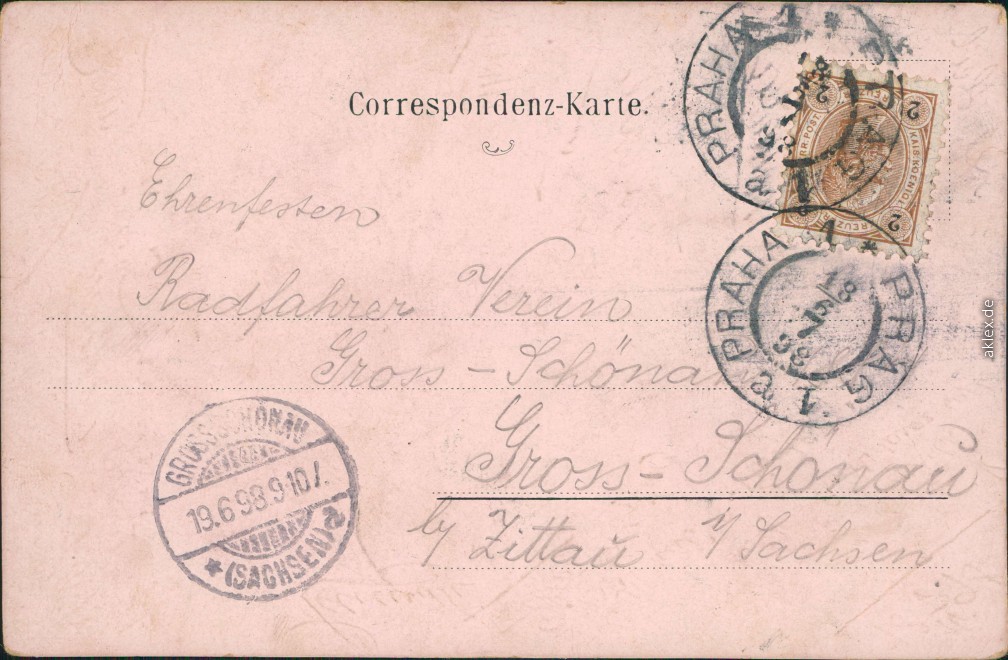 Correspondenz-Karte.
PRAHA 1 * PRAG 1
KAIS. KOENIGL.
2 2 2
PRAHA 1 * PRAG 1
98
Ehrenfesten
Radfahrer Verein
Gross - Schönau
Gross - Schönau
by Zittau i/Sachsen
GROSSSCHÖNAU
19.6.98.9-10V.
* (SACHSEN) a
aklex.de